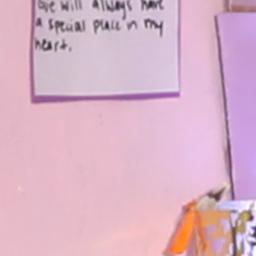 will always have
a special place in my
heart.